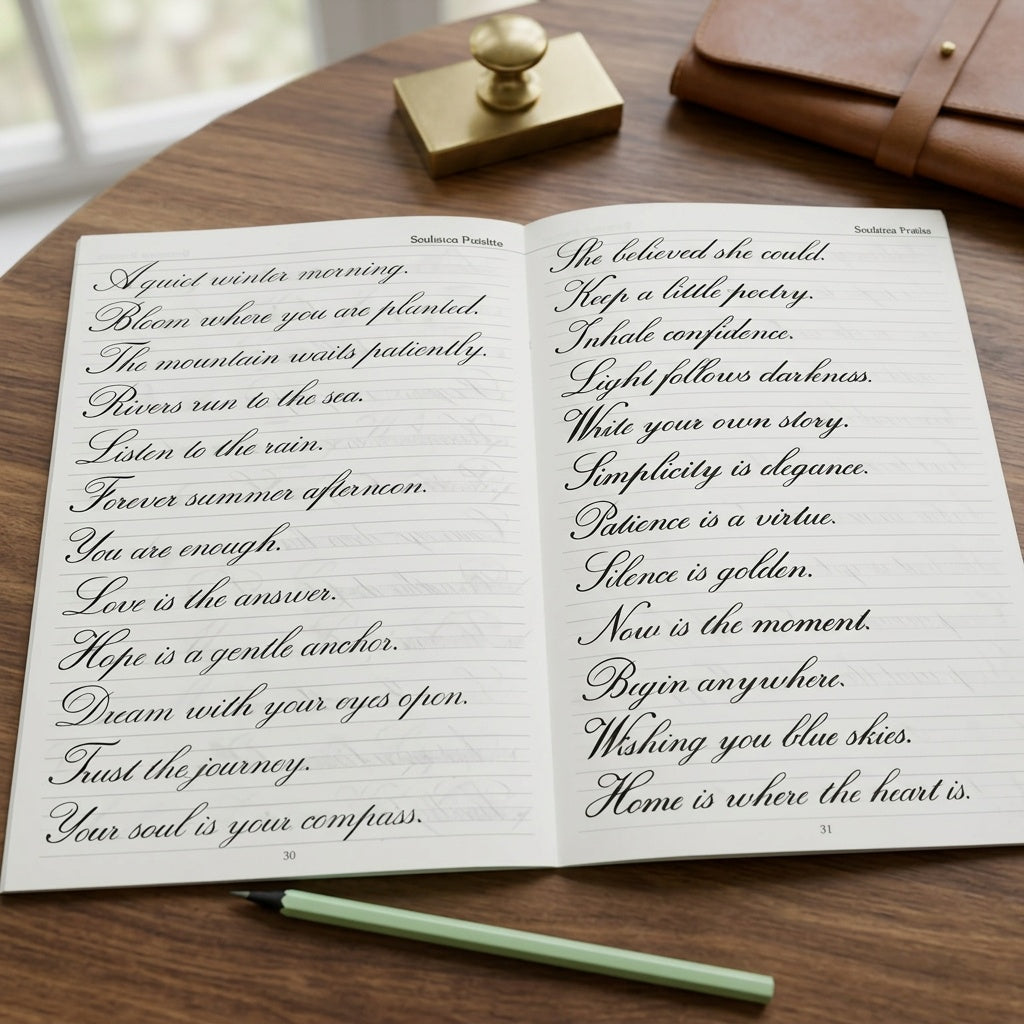 Soulisica Puisiite
A quiet winter morning.
Bloom where you are planted.
The mountain waits patiently.
Rivers run to the sea.
Listen to the rain.
Forever summer afternoon.
You are enough.
Love is the answer.
Hope is a gentle anchor.
Dream with your eyes open.
Trust the journey.
Your soul is your compass.
30
She believed she could.
Keep a little poetry.
Inhale confidence.
Light follows darkness.
Write your own story.
Simplicity is elegance.
Patience is a virtue.
Silence is golden.
Now is the moment.
Begin anywhere.
Wishing you blue skies.
Home is where the heart is.
31